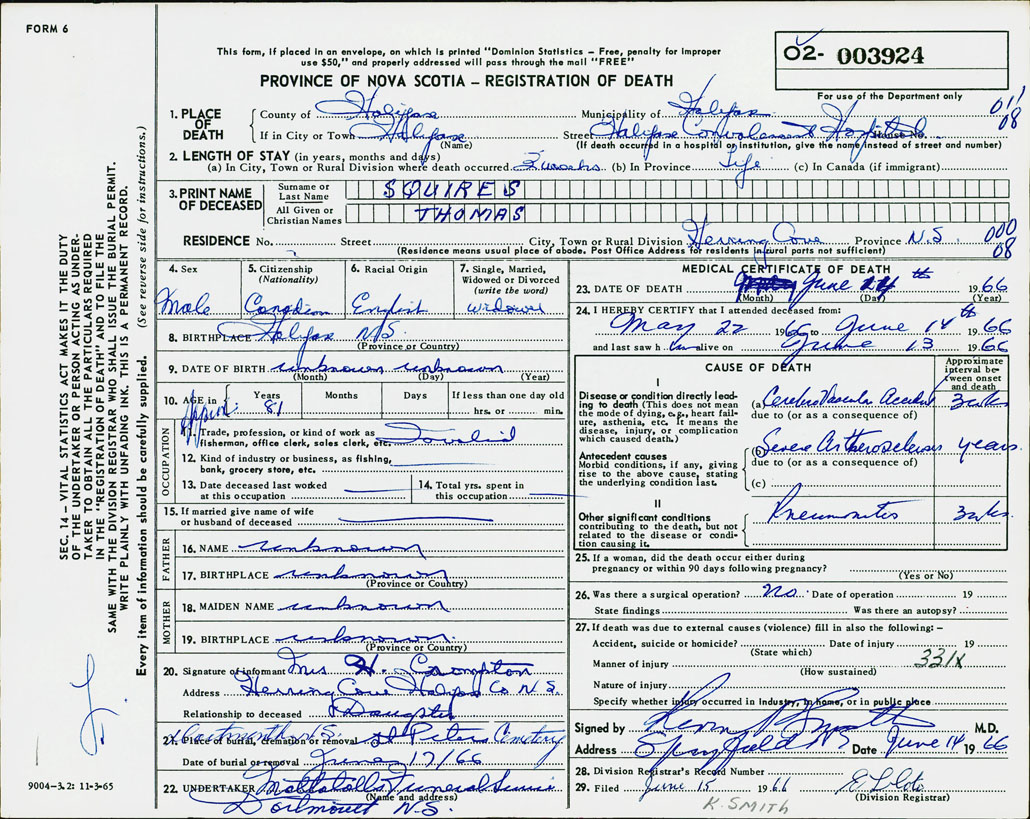 FORM 6
This form, if placed in an envelope, on which is printed "Dominion Statistics – Free, penalty for improper
use $50," and properly addressed will pass through the mail "FREE"
PROVINCE OF NOVA SCOTIA – REGISTRATION OF DEATH
02- 003924
For use of the Department only
011
08
1. PLACE OF DEATH
County of Halifax Municipality of Halifax
If in City or Town Halifax Street Halifax Convalescent Hospital House No.
(Name) (If death occurred in a hospital or institution, give the name instead of street and number)
2. LENGTH OF STAY (in years, months and days)
(a) In City, Town or Rural Division where death occurred 3 weeks (b) In Province Life (c) In Canada (if immigrant)
3. PRINT NAME OF DECEASED
Surname or Last Name SQUIRES
All Given or Christian Names THOMAS
RESIDENCE No. Street City, Town or Rural Division Herring Cove Province N.S. 000
08
(Residence means usual place of abode. Post Office Address for residents in rural parts not sufficient)
4. Sex
Male
5. Citizenship (Nationality)
Canadian
6. Racial Origin
English
7. Single, Married, Widowed or Divorced (write the word)
widower
8. BIRTHPLACE Halifax N.S.
(Province or Country)
9. DATE OF BIRTH unknown unknown
(Month) (Day) (Year)
10. AGE in Years Months Days If less than one day old
Approx. 81 hrs. or min.
OCCUPATION
11. Trade, profession, or kind of work as
fisherman, office clerk, sales clerk, etc. Invalid
12. Kind of industry or business, as fishing,
bank, grocery store, etc.
13. Date deceased last worked
at this occupation
14. Total yrs. spent in
this occupation
15. If married give name of wife
or husband of deceased
FATHER
16. NAME unknown
17. BIRTHPLACE unknown
(Province or Country)
MOTHER
18. MAIDEN NAME unknown
19. BIRTHPLACE unknown.
(Province or Country)
20. Signature of informant Mrs H. Crompton
Address Herring Cove Halifax Co N.S.
Relationship to deceased Daughter
Dartmouth N.S.
21. Place of burial, cremation or removal St Peters Cemetery
Date of burial or removal June 17/66
22. UNDERTAKER Mattatalls Funeral Service
(Name and address)
Dartmouth N.S.
MEDICAL CERTIFICATE OF DEATH
23. DATE OF DEATH June 14th 1966
(Month) (Day) (Year)
24. I HEREBY CERTIFY that I attended deceased from:
May 22 1966 to June 14th 1966
and last saw him alive on June 13 1966
CAUSE OF DEATH
Approximate interval between onset and death
I
Disease or condition directly leading to death (This does not mean
the mode of dying, e.g., heart failure, asthenia, etc. It means the
disease, injury, or complication
which caused death.)
(a) Cerebro Vascular Accident 3 wks
due to (or as a consequence of)
Antecedent causes
Morbid conditions, if any, giving
rise to the above cause, stating
the underlying condition last.
(b) Severe Artherosclerosis years.
due to (or as a consequence of)
(c)
II
Other significant conditions
contributing to the death, but not
related to the disease or condition causing it.
Pneumonitis 3 wks.
25. If a woman, did the death occur either during
pregnancy or within 90 days following pregnancy?
(Yes or No)
26. Was there a surgical operation? No. Date of operation 19
State findings Was there an autopsy?
27. If death was due to external causes (violence) fill in also the following: –
Accident, suicide or homicide? Date of injury 19
(State which)
331X
Manner of injury
(How sustained)
Nature of injury
Specify whether injury occurred in industry, in home, or in public place
Signed by Kevin Smith M.D.
Address Spryfield NS Date June 14 1966
28. Division Registrar's Record Number
29. Filed June 15 1966
(Division Registrar)
K. SMITH
SEC. 14 – VITAL STATISTICS ACT MAKES IT THE DUTY
OF THE UNDERTAKER OR PERSON ACTING AS UNDER-
TAKER TO OBTAIN ALL THE PARTICULARS REQUIRED
IN THE "REGISTRATION OF DEATH" AND TO FILE THE
SAME WITH THE DIVISION REGISTRAR WHO SHALL ISSUE THE BURIAL PERMIT.
WRITE PLAINLY WITH UNFADING INK. THIS IS A PERMANENT RECORD.
Every item of information should be carefully supplied. (See reverse side for instructions.)
9004-3.2: 11-3-65